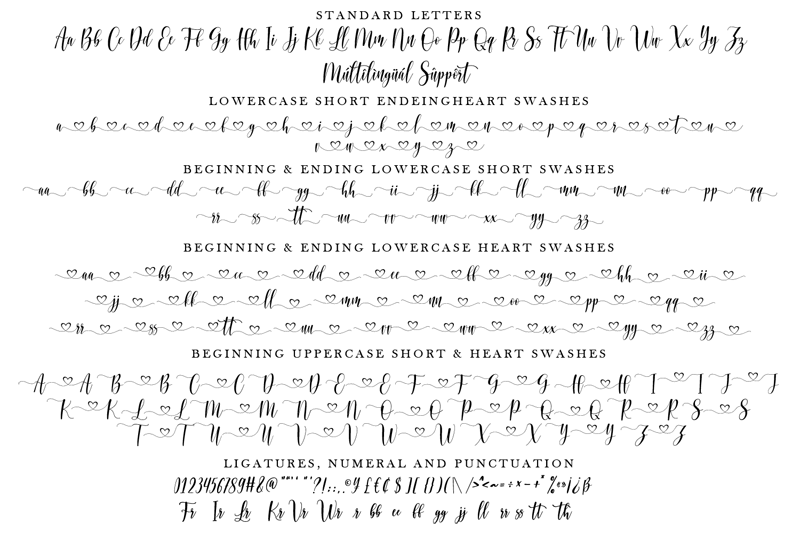 STANDARD LETTERS
Aa Bb Cc Dd Ee Ff Gg Hh Ii Jj Kk Ll Mm Nn Oo Pp Qq Rr Ss Tt Uu Vv Ww Xx Yy Zz
Multilingual Support
LOWERCASE SHORT ENDEINGHEART SWASHES
a b c d e f g h i j k l m n o p q r s t u
v w x y z
BEGINNING & ENDING LOWERCASE SHORT SWASHES
aa bb cc dd ee ff gg hh ii jj kk ll mm nn oo pp qq
rr ss tt uu vv ww xx yy zz
BEGINNING & ENDING LOWERCASE HEART SWASHES
aa bb cc dd ee ff gg hh ii
jj kk ll mm nn oo pp qq
rr ss tt uu vv ww xx yy zz
BEGINNING UPPERCASE SHORT & HEART SWASHES
A A B B C C D D E E F F G G H H I I J J
K K L L M M N N O O P P Q Q R R S S
T T U U V V W W X X Y Y Z Z
LIGATURES, NUMERAL AND PUNCTUATION
0123456789#&@ ?!:;,.
Fr Ir Lr Kr Vr Wr r bb ee ff gg jj ll rr ss tt th